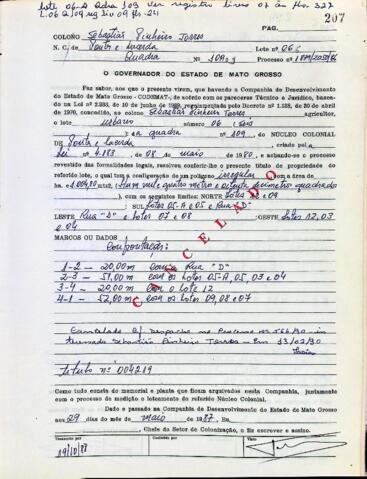 207
COLONO Sebastião Pinheiro Torres
N. C. de Ponte e Lacerda Lote nº 06
Quadra nº 109 Processo nº
O GOVERNADOR DO ESTADO DE MATO GROSSO
Faz saber, aos que o presente virem, que havendo a Companhia de Desenvolvimento
do Estado de Mato Grosso - CODEMAT, de acordo com os pareceres Técnico e Jurídico, basea-
do na Lei nº 2.938, de 10 de junho de 1969, regulamentado pelo Decreto nº 1.138, de 20 de abril
de 1970, concedido, ao colono Sebastião Pinheiro Torres agricultor,
o lote urbano número 06 seis
e a quadra nº 109, do NÚCLEO COLONIAL
de Ponte e Lacerda criado pela
Lei nº 4.183, de 08 de maio de 1980, e achando-se o processo
revestido das formalidades legais, resolveu conferir-lhe o presente título de propriedade
do referido lote, o qual tem a configuração de um polígono irregular com a área de
ha. e (Hum mil e quatro metro e oitenta quadrados
), com os seguintes limites: NORTE lotes e 09
SUL lotes 05-A e 05 e Rua "D"
LESTE Rua "D" e lotes 07 e 08 :OESTE lotes 12, 03
e 04
MARCOS OU DADOS
Confrontações:
1-2 — 20,00m com a Rua "D"
2-3 — 51,00m com os lotes 05-A, 05, 03 e 04
3-4 — 20,00m com o lote 12
4-1 — 52,00m com os lotes 09, 08 e 07
CANCELADO
Cancelado p/ despacho no Processo nº 566/90 - in
teressado Sebastião Pinheiro Torres - Em 13/02/90
titulo nº 004219
Como tudo consta do memorial e planta que ficam arquivados nesta Companhia, juntamente
com o processo de medição e loteamento do referido Núcleo Colonial.
Dado e passado na Companhia de Desenvolvimento do Estado de Mato Grosso
aos 29 dias do mês de maio de 1987 Eu,
, Chefe do Setor de Colonização, o fiz escrever e assino.
Transcrito por Conferido por Visto
19/10/87